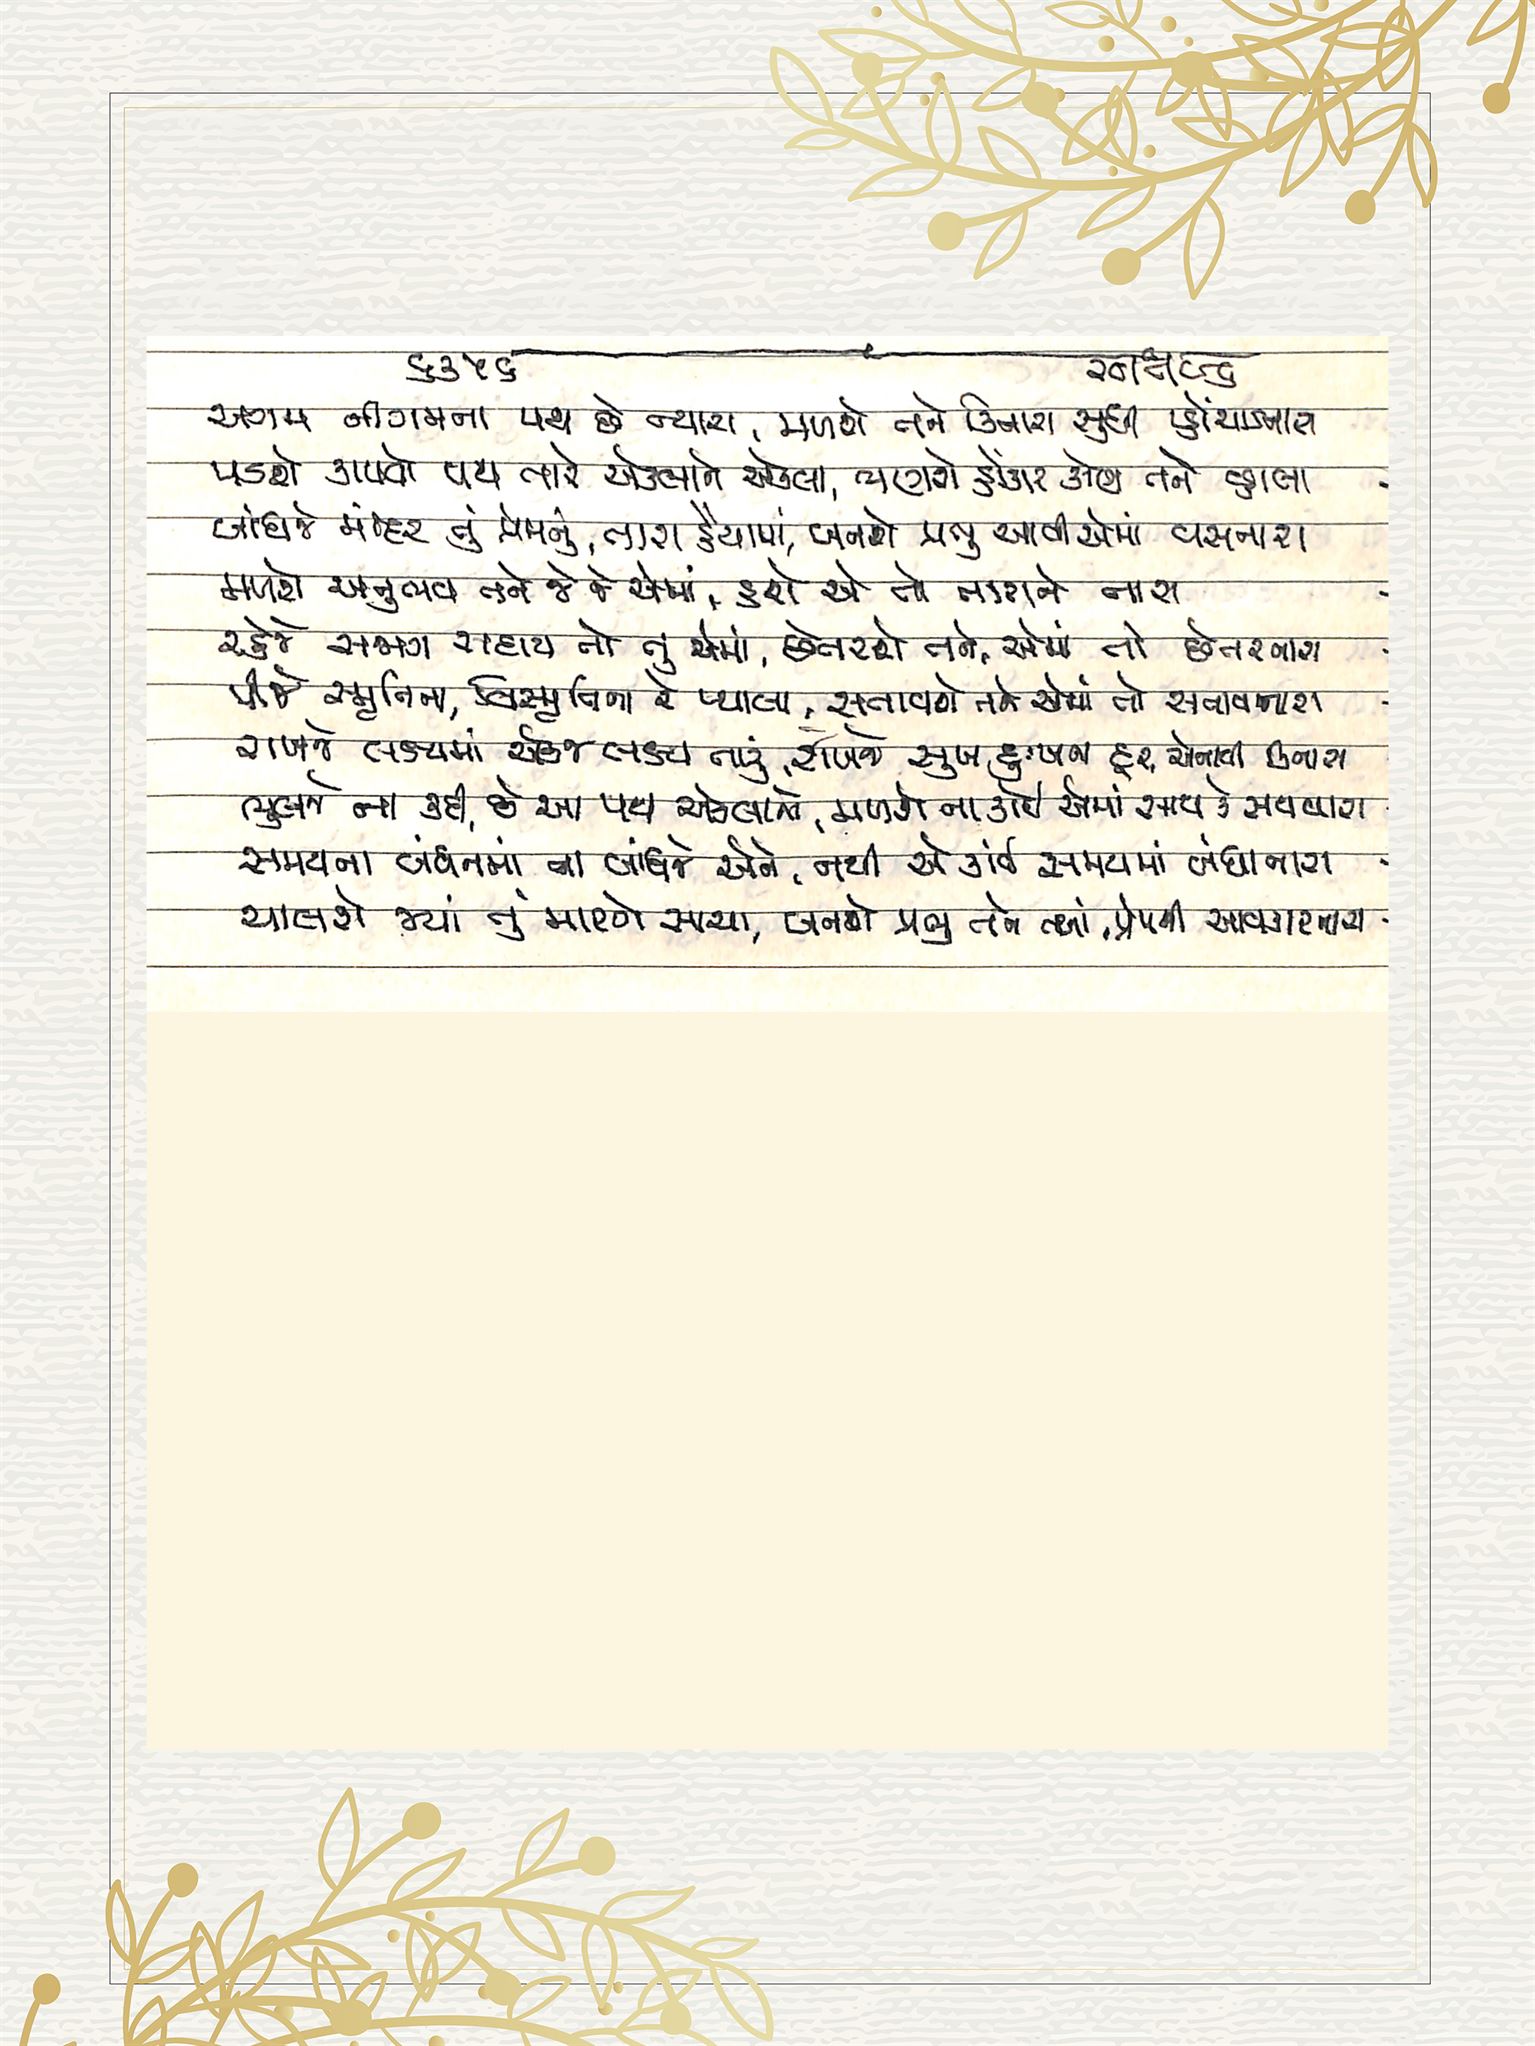 ૬૩૫૬
અગમ નીગમના પથ છે ન્યારા, મળશે તને કિનારા સુધી પહોંચાડનારા
પડશે કાપવો પથ તારે એકલાને એકલા, ગણજે હોંકાર કોણ તને વ્હાલા
બાંધજે મંદિર તું પ્રેમનું, તારા હૈયામાં, બનશે પ્રભુ આવી એમાં વસનારા
મળશે અનુભવ તને જે જે એમાં, હશે એ તો તારાને તારા
રહેજે સજાગ સદાય તો તું એમાં, છેતરશે તને, એમાં તો છેતરનારા
પીજે સ્મૃતિના, વિસ્મૃતિના રે પ્યાલા, સતાવશે તને એમાં તો સતાવનારા
રાખજે લક્ષ્યમાં એકજ લક્ષ્ય તારું, રાખજે સુખ દુઃખના દૂર એનાથી કિનારા
ભુલજે ના કદી, છે આ પથ એકલાનો, મળશે ના કોઈ એમાં સાથ કે સથવારા
સમયના બંધનમાં ના બાંધજે એને, નથી એ કાંઈ સમયમાં બંધાનારા
ચાલશે જ્યાં તું મારગે સાચા, બનશે પ્રભુ તને ત્યાં, પ્રેમથી આવકારનારા